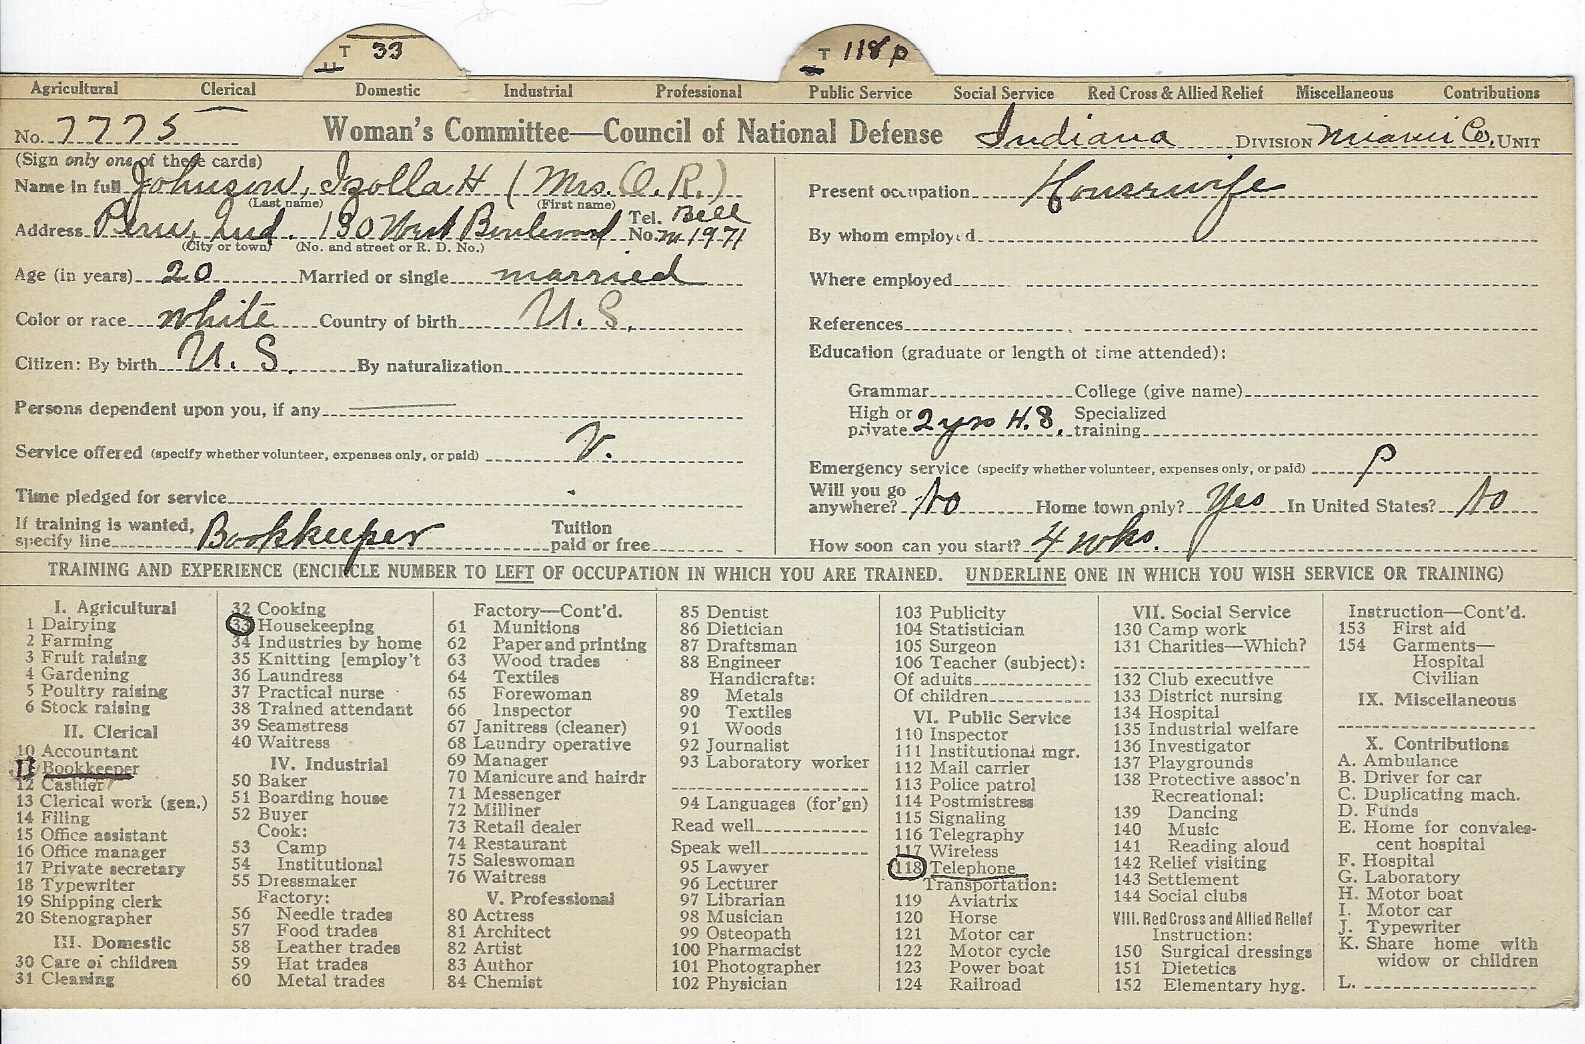 T 33
U
T 118 p
U
Agricultural Clerical Domestic Industrial Professional Public Service Social Service Red Cross & Allied Relief Miscellaneous Contributions
No. 7775 Woman's Committee—Council of National Defense Indiana DIVISION Miami Co. UNIT
(Sign only one of these cards)
Name in full Johnson, Izolla H (Mrs. O. R.)
(Last name) (First name)
Address Peru, Ind. 130 West Boulevard Tel. No. Bell m 1971
(City or town) (No. and street or R. D. No.)
Age (in years) 20 Married or single married
Color or race white Country of birth U. S.
Citizen: By birth U. S. By naturalization
Persons dependent upon you, if any —
Service offered (specify whether volunteer, expenses only, or paid) V.
Time pledged for service
If training is wanted, specify line Bookkeeper Tuition paid or free
Present occupation Housewife
By whom employed
Where employed
References
Education (graduate or length of time attended):
Grammar College (give name)
High or private 2 yrs H.S. Specialized training
Emergency service (specify whether volunteer, expenses only, or paid) P
Will you go anywhere? No Home town only? Yes In United States? No
How soon can you start? 4 wks.
TRAINING AND EXPERIENCE (ENCIRCLE NUMBER TO LEFT OF OCCUPATION IN WHICH YOU ARE TRAINED. UNDERLINE ONE IN WHICH YOU WISH SERVICE OR TRAINING)
I. Agricultural
1 Dairying
2 Farming
3 Fruit raising
4 Gardening
5 Poultry raising
6 Stock raising
II. Clerical
10 Accountant
11 Bookkeeper
12 Cashier
13 Clerical work (gen.)
14 Filing
15 Office assistant
16 Office manager
17 Private secretary
18 Typewriter
19 Shipping clerk
20 Stenographer
III. Domestic
30 Care of children
31 Cleaning
32 Cooking
33 Housekeeping
34 Industries by home
35 Knitting [employ't
36 Laundress
37 Practical nurse
38 Trained attendant
39 Seamstress
40 Waitress
IV. Industrial
50 Baker
51 Boarding house
52 Buyer
Cook:
53 Camp
54 Institutional
55 Dressmaker
Factory:
56 Needle trades
57 Food trades
58 Leather trades
59 Hat trades
60 Metal trades
Factory—Cont'd.
61 Munitions
62 Paper and printing
63 Wood trades
64 Textiles
65 Forewoman
66 Inspector
67 Janitress (cleaner)
68 Laundry operative
69 Manager
70 Manicure and hairdr
71 Messenger
72 Milliner
73 Retail dealer
74 Restaurant
75 Saleswoman
76 Waitress
V. Professional
80 Actress
81 Architect
82 Artist
83 Author
84 Chemist
85 Dentist
86 Dietician
87 Draftsman
88 Engineer
Handicrafts:
89 Metals
90 Textiles
91 Woods
92 Journalist
93 Laboratory worker
94 Languages (for'gn)
Read well
Speak well
95 Lawyer
96 Lecturer
97 Librarian
98 Musician
99 Osteopath
100 Pharmacist
101 Photographer
102 Physician
103 Publicity
104 Statistician
105 Surgeon
106 Teacher (subject):
Of adults
Of children
VI. Public Service
110 Inspector
111 Institutional mgr.
112 Mail carrier
113 Police patrol
114 Postmistress
115 Signaling
116 Telegraphy
117 Wireless
118 Telephone
Transportation:
119 Aviatrix
120 Horse
121 Motor car
122 Motor cycle
123 Power boat
124 Railroad
VII. Social Service
130 Camp work
131 Charities—Which?
132 Club executive
133 District nursing
134 Hospital
135 Industrial welfare
136 Investigator
137 Playgrounds
138 Protective assoc'n
Recreational:
139 Dancing
140 Music
141 Reading aloud
142 Relief visiting
143 Settlement
144 Social clubs
VIII. Red Cross and Allied Relief
Instruction:
150 Surgical dressings
151 Dietetics
152 Elementary hyg.
Instruction—Cont'd.
153 First aid
154 Garments—
Hospital
Civilian
IX. Miscellaneous
X. Contributions
A. Ambulance
B. Driver for car
C. Duplicating mach.
D. Funds
E. Home for convales-
cent hospital
F. Hospital
G. Laboratory
H. Motor boat
I. Motor car
J. Typewriter
K. Share home with
widow or children
L.